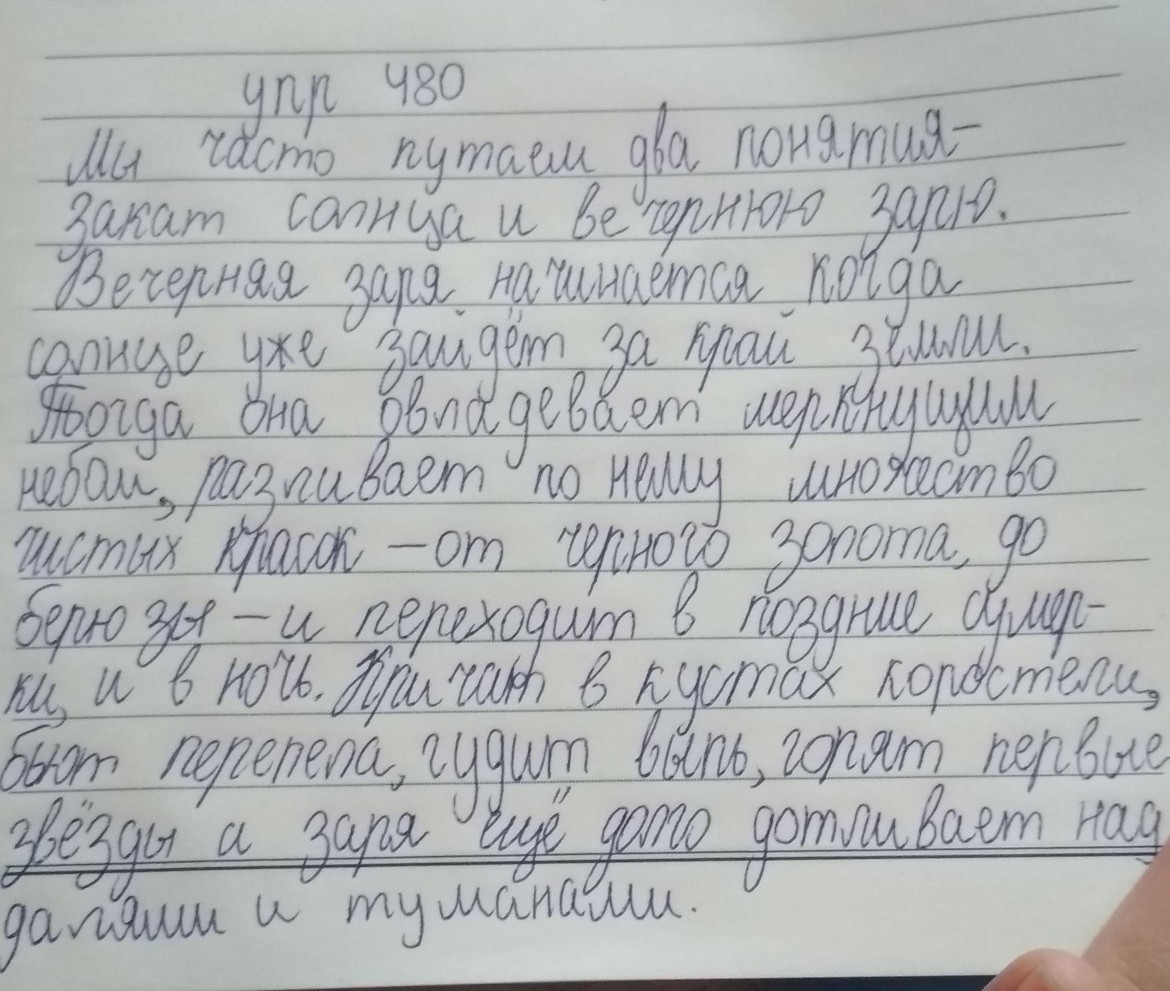 упр 480
Мы часто путаем два понятия-
закат солнца и вечернюю зарю.
Вечерняя заря начинается когда
солнце уже зайдёт за край земли.
Тогда она овладевает меркнущим
небом, разливает по нему множество
чистых красок - от черного золота, до
берюзы - и переходит в поздние сумер-
ки, и в ночь. Кричат в кустах коростели,
бьют перепела, гудит выпь, горят первые
звёзды а заря ещё долго дотливает над
далями и туманами.